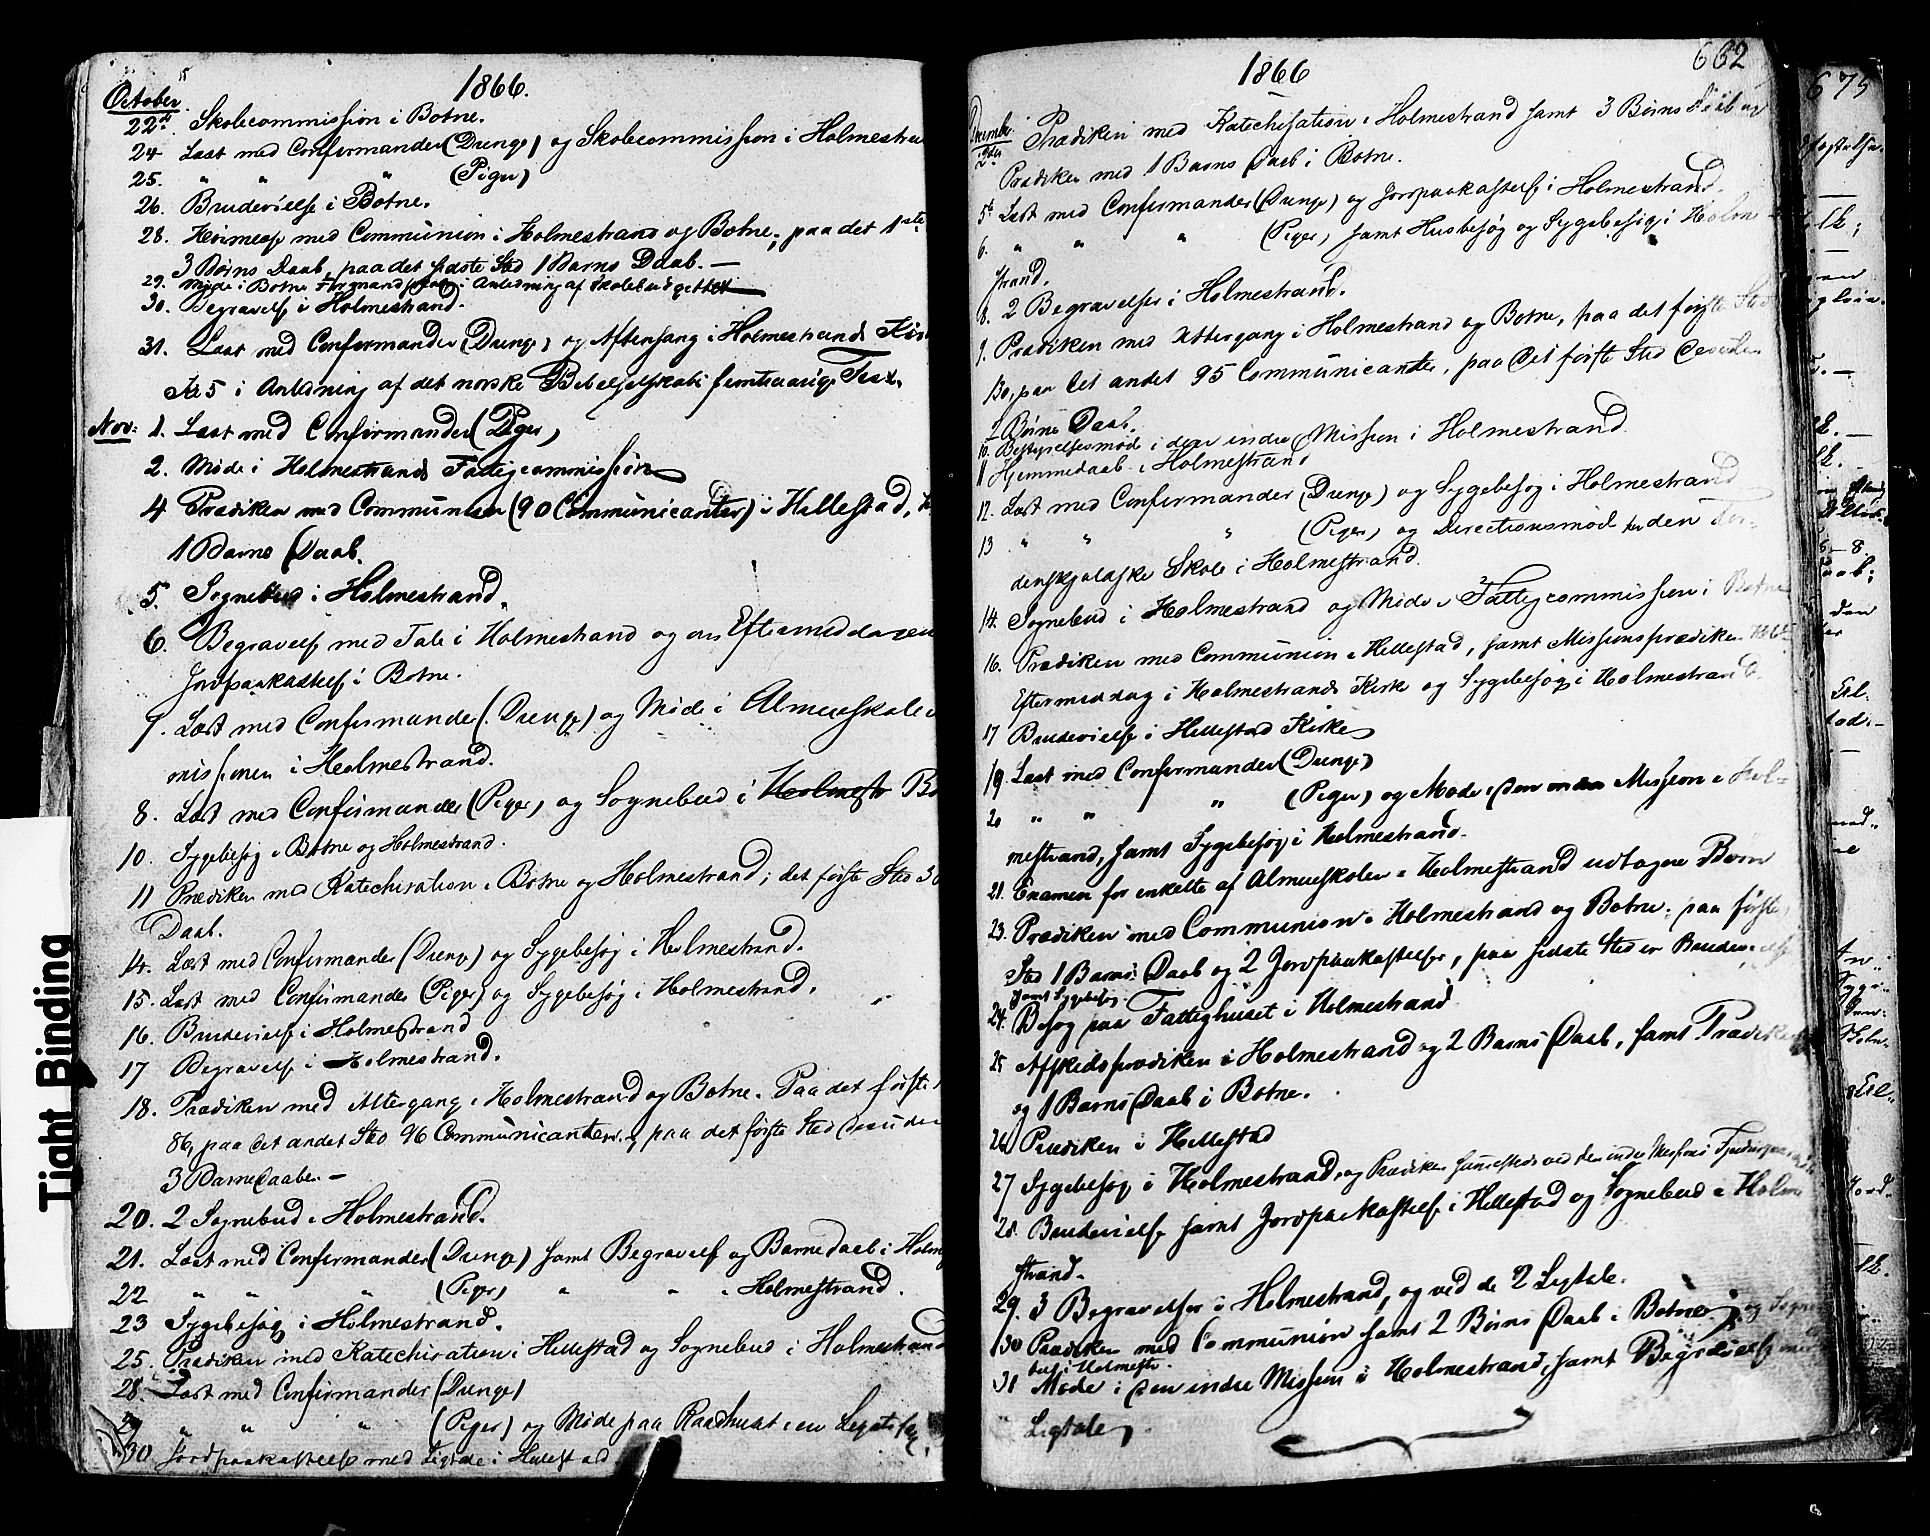 1866.
October
22de Skolecommission i Botne.
24 Læst med Confirmander (Drenge) og Skolecommission i Holmestra
25. " " " (Piger)
26. Brudevielse i Botne.
28. Høimesse med Communion i Holmestrand og Botne; paa det 1ste
3 Børns Daab, paa det sidste Sted 1 Barns Daab. —
29. Møde i Botne Formandskab i Anledning af Skolebudgettet
30. Begravelse i Holmestrand.
31. Læst med Confirmander (Drenge) og Aftensang i Holmestrands Kir
Kl 5 i Anledning af det norske Bibelselskabs femtiaarige Fest.
Nov: 1. Læst med Confirmander (Piger)
2. Møde i Holmestrands Fattigcommission
4 Prædiken med Communion (90 Communicanter) i Hillestad,
1 Barns Daab.
5. Sognebud i Holmestrand.
6. Begravelse med Tale i Holmestrand og om Eftermiddagen
Jordpaakastelse i Botne.
7. Læst med Confirmander (Drenge) og Møde i Almueskolec
missionen i Holmestrand.
8. Læst med Confirmander (Piger) og Sognebud i Holmestr Bo
10. Sygebesøg i Botne og Holmestrand.
11 Prædiken med Katechisation i Botne og Holmestrand; det første Sted 3
Daab.
14. Læst med Confirmander (Drenge) og Sygebesøg i Holmestrand.
15. Læst med Confirmander (Piger) og Sygebesøg i Holmestrand.
16. Brudevielse i Holmestrand
17 Begravelse i Holmestrand.
18. Prædiken med Altergang i Holmestrand og Botne. Paa det første
86, paa det andet Sted 96 Communicanter, paa det første Sted desuden
3 Barnedaaber. —
20. 2 Sognebud i Holmestrand.
21. Læst med Confirmander (Drenge) samt Begravelse og Barnedaab i Holm
22 " " " (Piger) " " " Holmestrand.
23 Sygebesøg i Holmestrand.
25. Prædiken med Katechisation i Hillestad og Sognebud i Holmestrand
28. Læst med Confirmander (Drenge)
29 " " " (Piger) og Møde paa Raadhuset i en Legatsag.
30 Jordpaakastelse med Ligtale i Hillestad.
1866
662
December
2den Prædiken med Katechisation i Holmestrand samt 3 Børns Daab og
Prædiken med 1 Barns Daab i Botne.
5te Læst med Confirmander (Drenge) og Jordpaakastelse i Holmestrand.
6. " " " (Piger) samt Husbesøg og Sygebesøg i Holme
strand.
8. 2 Begravelser i Holmestrand.
9. Prædiken med Altergang i Holmestrand og Botne, paa det første Sted
130, paa det andet 95 Communicanter, paa det første Sted desuden
2 Børns Daab.
10. Bestyrelsesmøde i den indre Mission i Holmestrand.
11 Hjemmedaab i Holmestrand
12. Læst med Confirmander (Drenge) og Sygebesøg i Holmestrand
13 " " " (Piger) og Directionsmøde for den Tor-
denskjoldske Skole i Holmestrand.
14. Sognebud i Holmestrand og Møde i Fattigcommissionen i Botne
16. Prædiken med Communion i Hillestad, samt Missionsprædiken
Eftermiddag i Holmestrands Kirke og Sygebesøg i Holmestrand.
17 Brudevielse i Hillestad Kirke
19 Læst med Confirmander (Drenge)
20 " " " (Piger) og Møde i den indre Mission i Hol-
mestrand, samt Sygebesøg i Holmestrand.
21. Examen for enkelte af Almueskolen i Holmestrand udtagne Børn
23. Prædiken med Communion i Holmestrand og Botne; paa første
Sted 1 Barns Daab og 2 Jordpaakastelser, paa sidste Sted en Brudevielse
samt Sygebesøg.
24. Besøg paa Fattighuset i Holmestrand
25 Afskedsprædiken i Holmestrand og 2 Barns Daab, samt Prædiken
og 1 Barns Daab i Botne.
26 Prædiken i Hillestad
27 Sygebesøg i Holmestrand, og Prædiken sammesteds ved den indre Missions
28. Brudevielse samt Jordpaakastelse i Hillestad og Sognebud i Holme
strand.
29. 3 Begravelser i Holmestrand, og ved de 2 Ligtale.
30 Prædiken med Communion samt 2 Børns Daab i Botne, og Sogne
bud i Holmestr.
31 Møde i den indre Mission i Holmestrand, samt Begravelse med
Ligtale.
675
Tight Binding